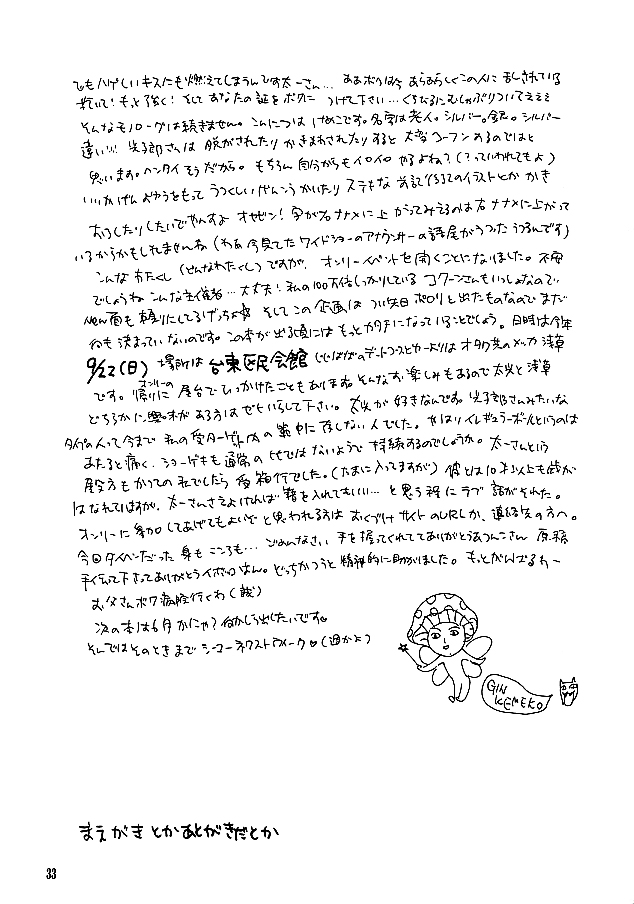 でもハゲしいキスにも燃えてしまうんです太一さん… ああボクは今 あらあらしくこの人に 乱されている
もっと強く! そして あなたの証を ボクに つけて下さい… くちびるにむしゃぶりついてえええ
そんなモノローグは続きません。こんにちは けめこです。名字は老人。シルバー。銀。シルバー
違い!!! 光子郎さんは 脱がされたり かきまわされたりすると 大変コーフンするのではと
思います。ヘンタイそうだから。もちろん自分からもイロイロ やるよね?(?っていわれてもよ)
いいかげん ようをもって うつくしいげんこうかいたり ステキな 表記 のイラストとか かき
おろしたりしたいでやんすよ オヤビン! 字が右ナナメに上がってみえるのは右ナナメに上がって
いるからかもしれませんね(わあ 今見てた ワイドショーのアナウンサーの語尾がうつった うつるんです)
こんなわたくし(どんなわたくし)ですが、 オンリーイベントを開くことになりました。不安
でしょうねこんな主催者…大丈夫! 私の100万倍しっかりしている コクーンさんもいっしょなので…
面も頼りにしてるげっちょ そしてこの企画は つい先日ポロリと出たものなので まだ
何も決まっていないのです。この本が出る頃には もっとカタチになっていることでしょう。日時は今年
9/22(日) 場所は 台東区民会館 オタク系のメッカ 浅草
です。オンリーの帰りに 屋台でひっかけたこともあります そんなお楽しみもあるので太光と浅草
どちらかに興味がある方は ぜひいらして下さい。太光が好きなんです。光子郎さんみたいな
タイプの人って今まで 私の受ターゲット内の 範中に 存しない人でした。やはりイレギュラーボールというのは
あたると痛く、ショーゲキも通常の 比ではないようで 持続するのでしょうか。太一さんという
殿方もかつての私でしたら 即箱行でした。(たまに入ってますが) 彼とは10才以上も歳が
はなれていますが、太一さんさえよければ 籍を入れてもいい… と思う程に ラブ 話がそれた。
オンリーに参加してあげてもよいぞ と思われる方は おくづけサイトのURLか、連絡先の方へ。
今回タイヘンだった 身もこころも… ごめんなさい 手を握ってくれててありがとうあつんこさん 原稿
手伝って下さってありがとうイボコはん。どっちかっつうと精神的に助かりました。もっとがんばるわー
お父さんボク病院行くわ(誠)
次の本は6月かにゃ? 何かしら出したいです。
そんではそのときまで シーユーネクストウィーク♡(週かよ)
GIN
KEMEKO
まえがきとかあとがきだとか
33